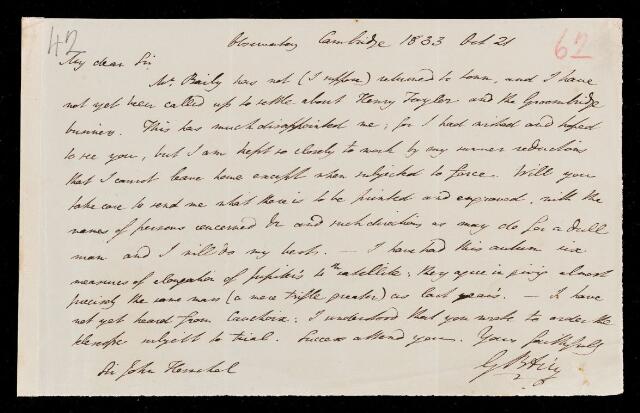 42
62
Observatory Cambridge 1833 Oct 21
My dear Sir
Mr. Baily has not (I suppose) returned to town, and I have
not yet been called up to settle about Henry Taylor and the Groombridge
business. This has much disappointed me; for I had wished and hoped
to see you, but I am kept so closely to work by my reductions
that I cannot leave home except when subjected to force. Will you
take care to send me what there is to be printed and engraved, with the
names of persons concerned &c and such directions as may do for a dull
man and I will do my best. — I have had this autumn six
measures of elongation of Jupiter's 4th satellite: they agree in giving almost
precisely the same mass (a mere trifle greater) as last year's. — I have
not yet heard from Cauchoix: I understood that you wrote to order the
telescope subject to trial. Success attend you. Yours faithfully
Sir John Herschel
G B Airy